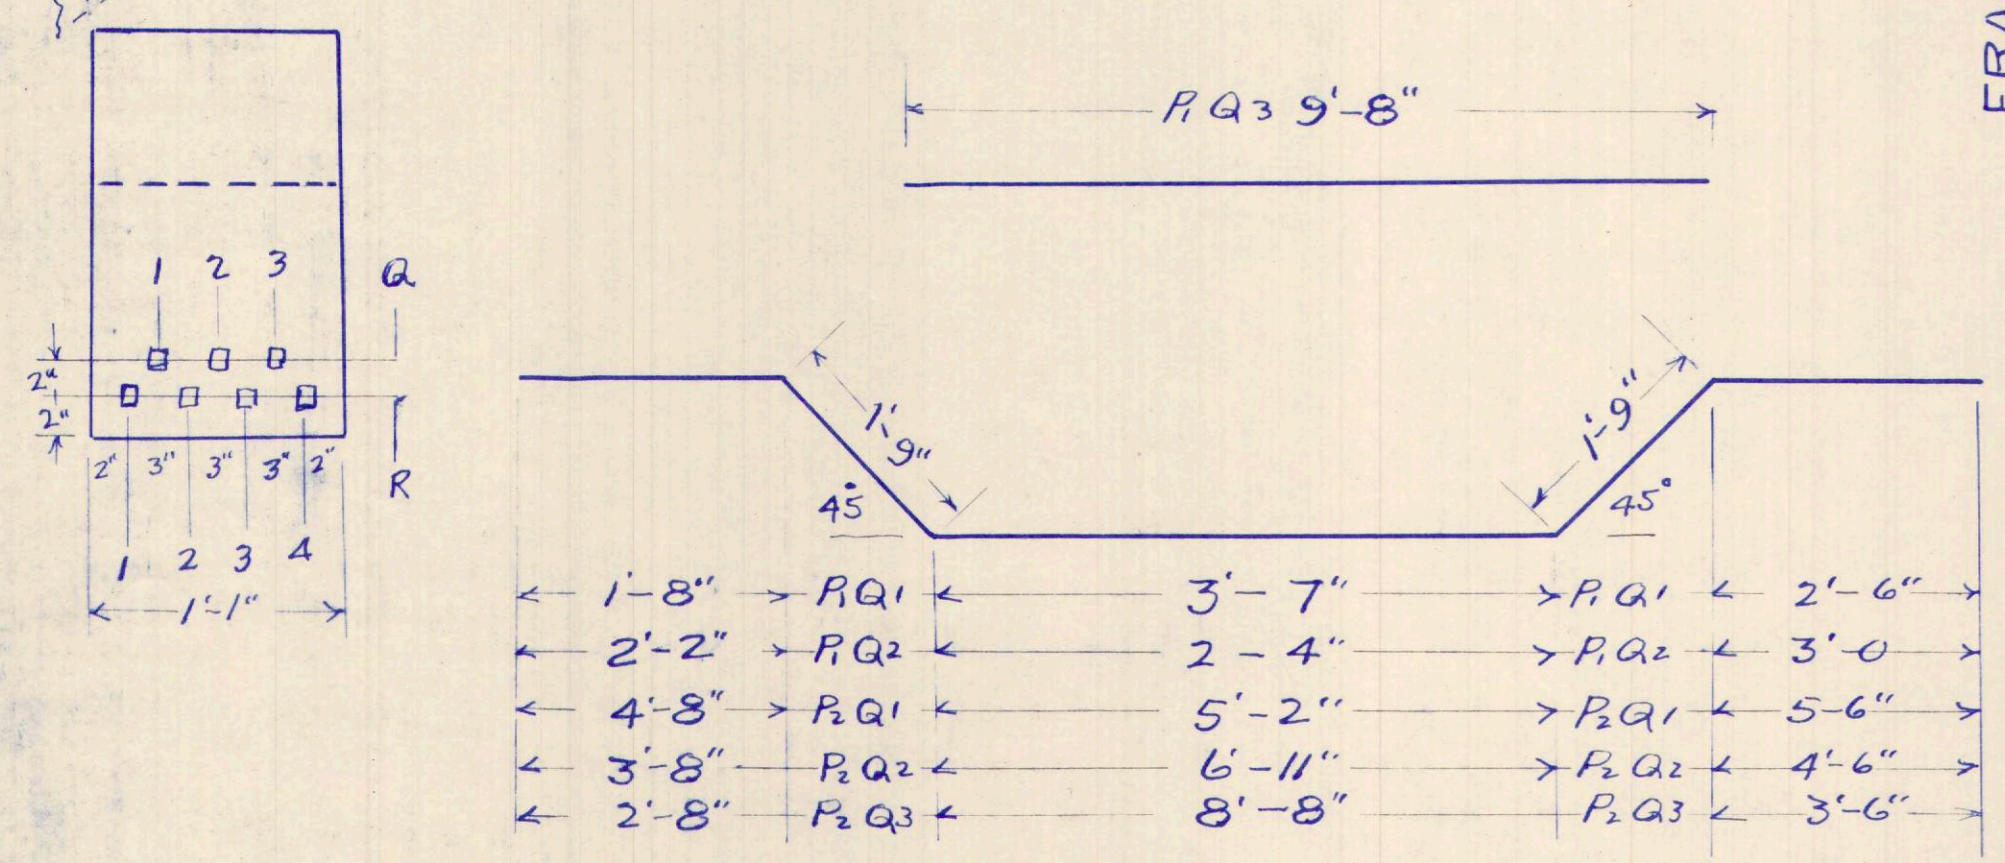 P1 Q3 9'-8"
1 2 3 Q
2"
2"
2" 3" 3" 3" 2"
R
1 2 3 4
1'-1"
1'-9"
1'-9"
45°
45°
1'-8" P1Q1 3'-7" P1Q1 2'-6"
2'-2" P1Q2 2-4" P1Q2 3'-0
4'-8" P2Q1 5'-2" P2Q1 5-6"
3'-8" P2Q2 6'-11" P2Q2 4'-6"
2'-8" P2Q3 8'-8" P2Q3 3'-6"